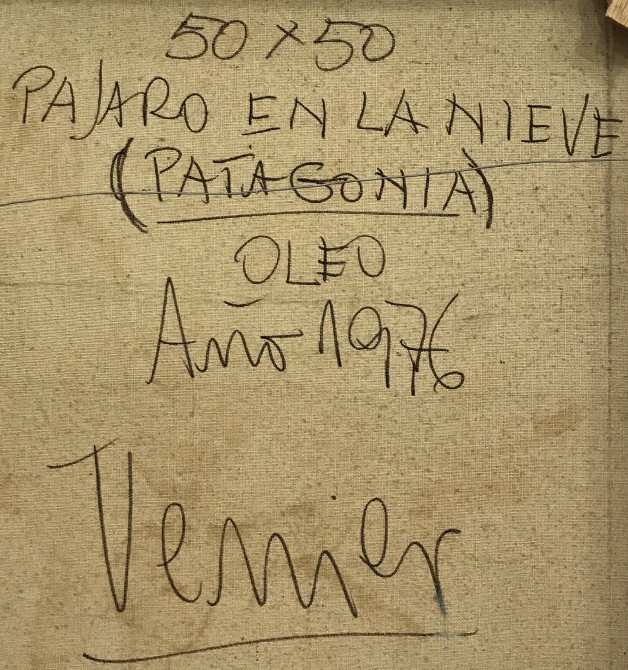 50 x 50
PAJARO EN LA NIEVE
(PATAGONIA)
OLEO
Año 1976
Venier